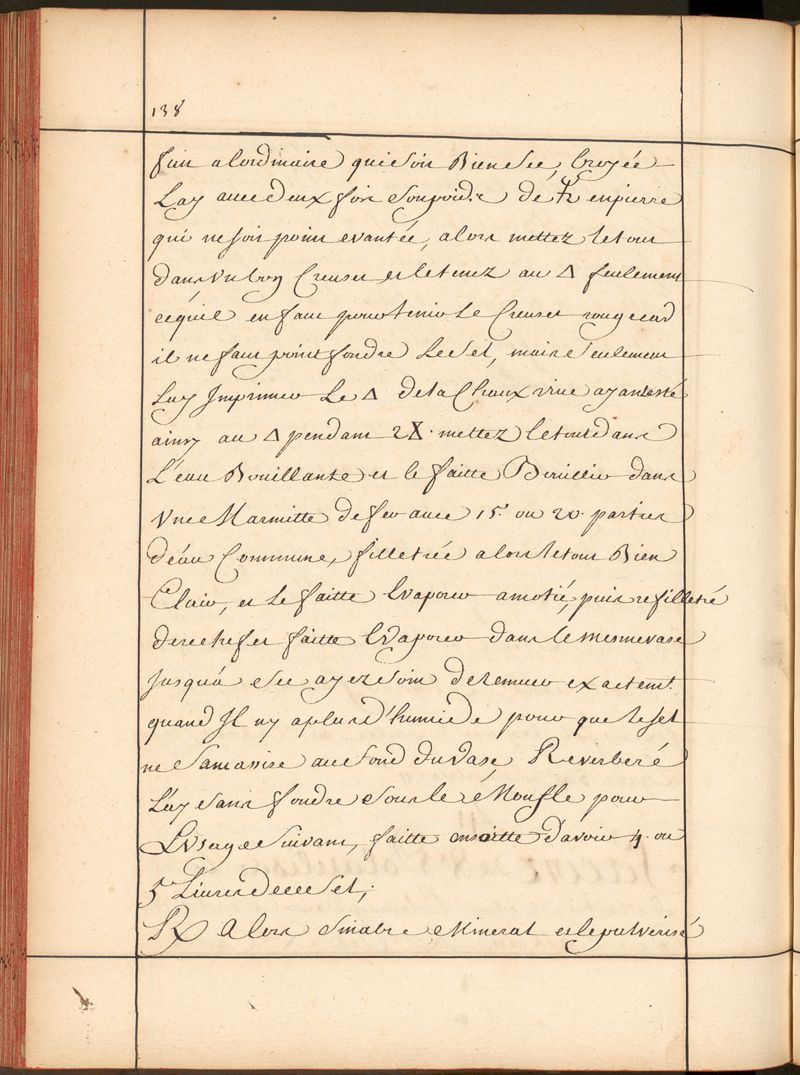 138
fait alordinaire quisoit Bien Sec, broyée
Lay avec deux fois Sonpoids de ♄ enpierre
qui nesoit point evantée, alors mettez letout
dans un bon Creuset et letenez au △ seulement
cequil en faut pour tenir Le Creuset rouge car
il ne faut point fondre LeSel, mais Seulement
Luy Imprimer Le △ dela Chaux vive ayant esté
ainsy au △ pendant 2 X. mettez letout dans
L'eau Bouillante et le faitte Bouillir dans
Vne Marmitte de fer avec 15. ou 20. parties
déau Commune, filletrée alors letout Bien
Clair, et Le faitte Evaporer amotié, puis refilletré
derechef et faitte Evaporer dans le mesme vase
Jusquá Sec ayez Soin deRemuer exactemt.
quand Il ny aplus d'humide pour que leSel
ne Samassise au fond du Vase, Reverberé
Lay Sans fondre Sous le Moufle pour
LVsage Suivant, faitte ensoitte d'avoir 4. ou
5 Livres de ce Sel;
℞ Alors Sinabre Mineral et le pulverisé